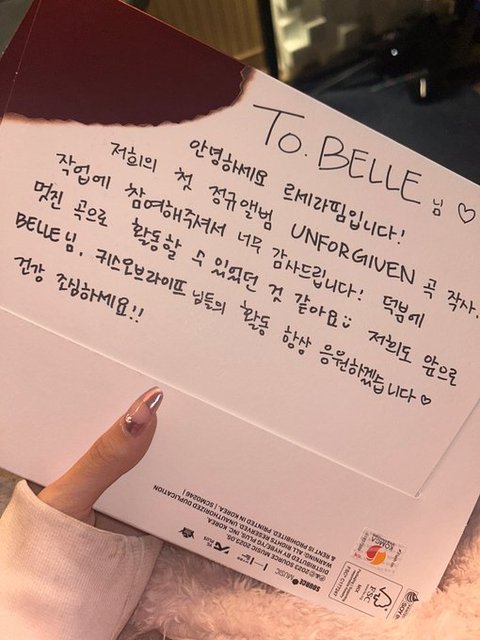 To. BELLE 님 ♡
안녕하세요 르세라핌입니다!
저희의 첫 정규앨범 UNFORGIVEN 곡 작사,
작업에 참여해주셔서 너무 감사드립니다! 덕분에
멋진 곡으로 활동할 수 있었던 것 같아요☺ 저희도 앞으로
BELLE님, 키스오브라이프 님들의 활동 항상 응원하겠습니다♡
건강 조심하세요!!
SOURCE MUSIC
YG PLUS
℗&© 2023 SOURCE MUSIC 2023.05.
DISTRIBUTED BY HYBE/YG PLUS, INC. KOREA.
WARNING: ALL RIGHTS RESERVED. UNAUTHORIZED DUPLICATION
& RENT IS PROHIBITED. PRINTED IN KOREA | SCM0246 |
FSC
MIX